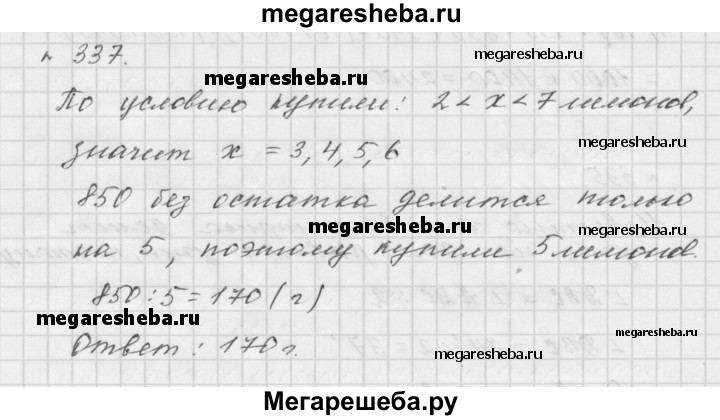 megaresheba.ru
№ 337.
megaresheba.ru
megaresheba.ru
По условию купили: 2 < x < 7 лимонов,
megaresheba.ru
значит x = 3, 4, 5, 6
850 без остатка делится только
megaresheba.ru
на 5, поэтому купили 5 лимонов.
850 : 5 = 170 (г)
megaresheba.ru
megaresheba.ru
Ответ : 170 г.
Мегарешеба.ру